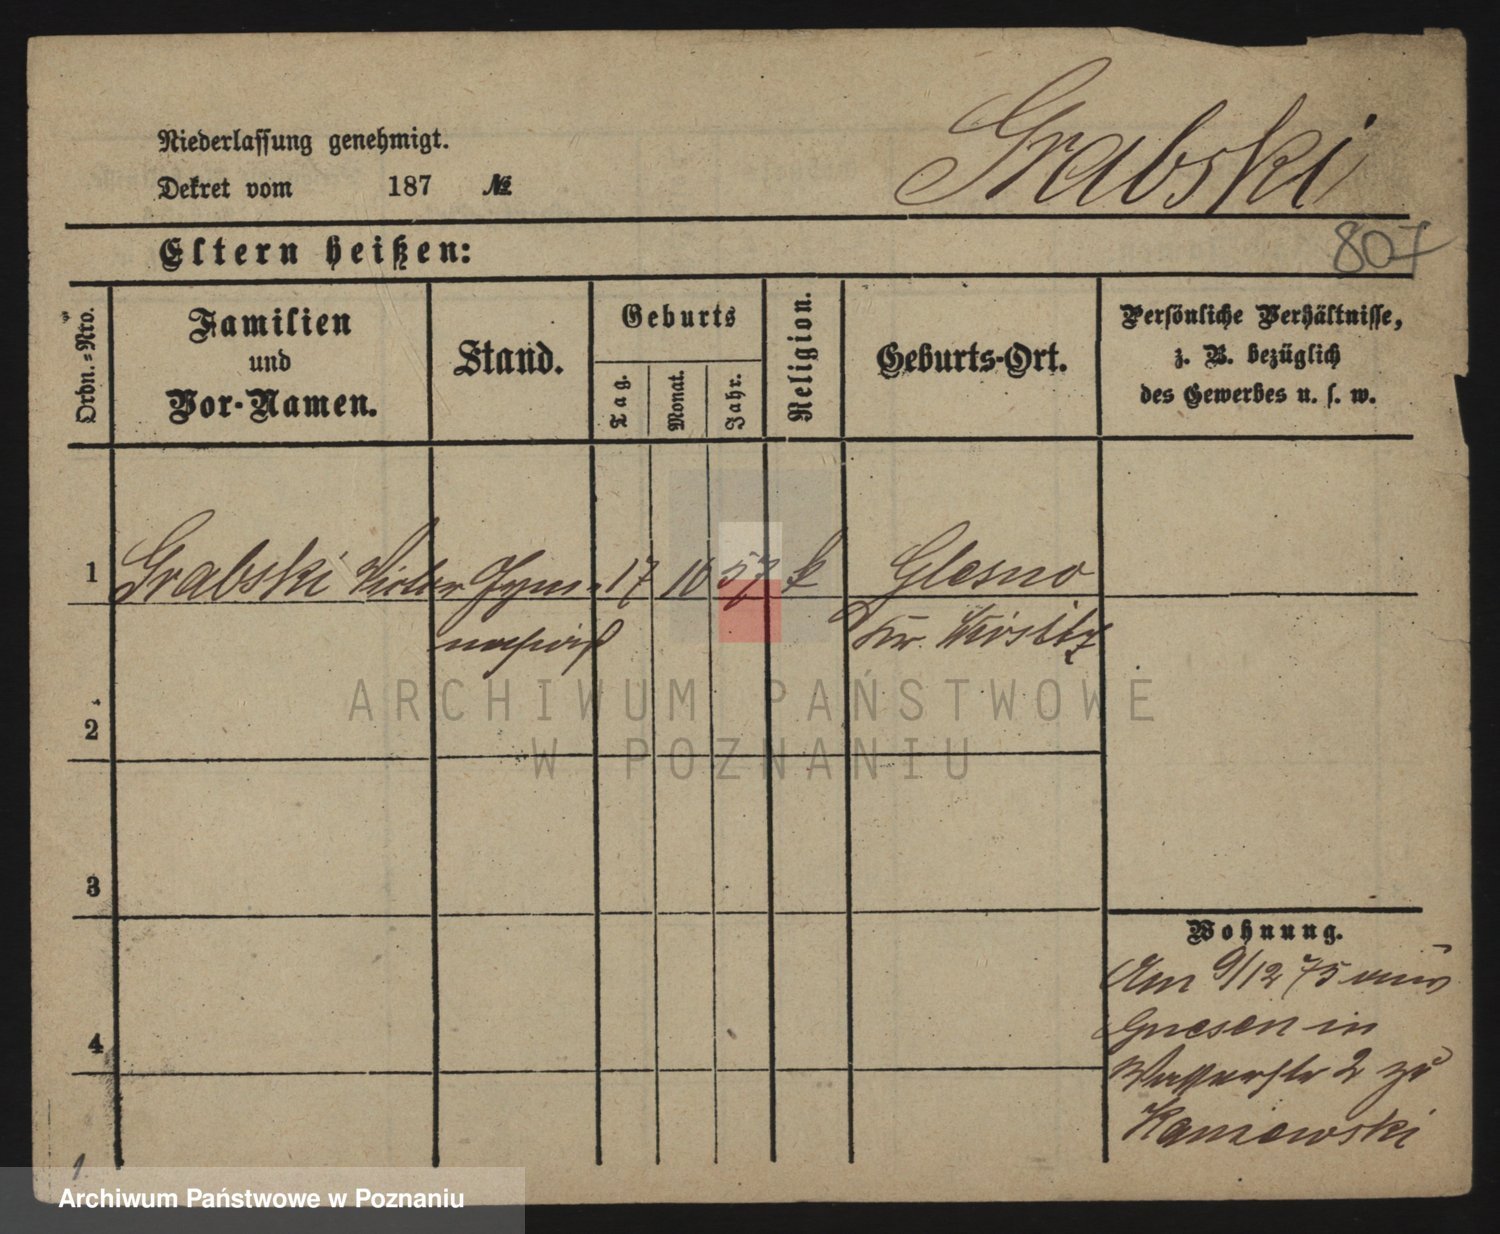 Grabski
Niederlassung genehmigt.
Dekret vom 187 №
807
Eltern heißen:
Ordn.=Nro.
Familien
und
Vor-Namen.
Stand.
Geburts
Tag.
Monat.
Jahr.
Religion.
Geburts-Ort.
Persönliche Verhältnisse,
z. B. bezüglich
des Gewerbes u. s. w.
1 Grabski Victor Gym- 17 10 57 k Glesno
Kr. Wirsitz
2
3
4
Wohnung.
Am 9/12 75 aus
Gnesen in
Wasserstr 2 zu
Kaniewski
1
ARCHIWUM PAŃSTWOWE
W POZNANIU
Archiwum Państwowe w Poznaniu